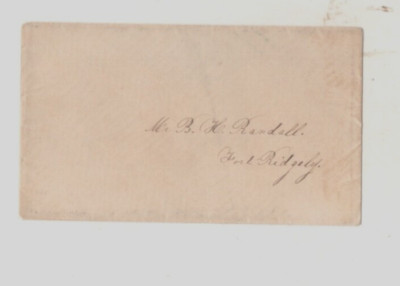 Mr. B. H. Randall.
Fort Ridgely.